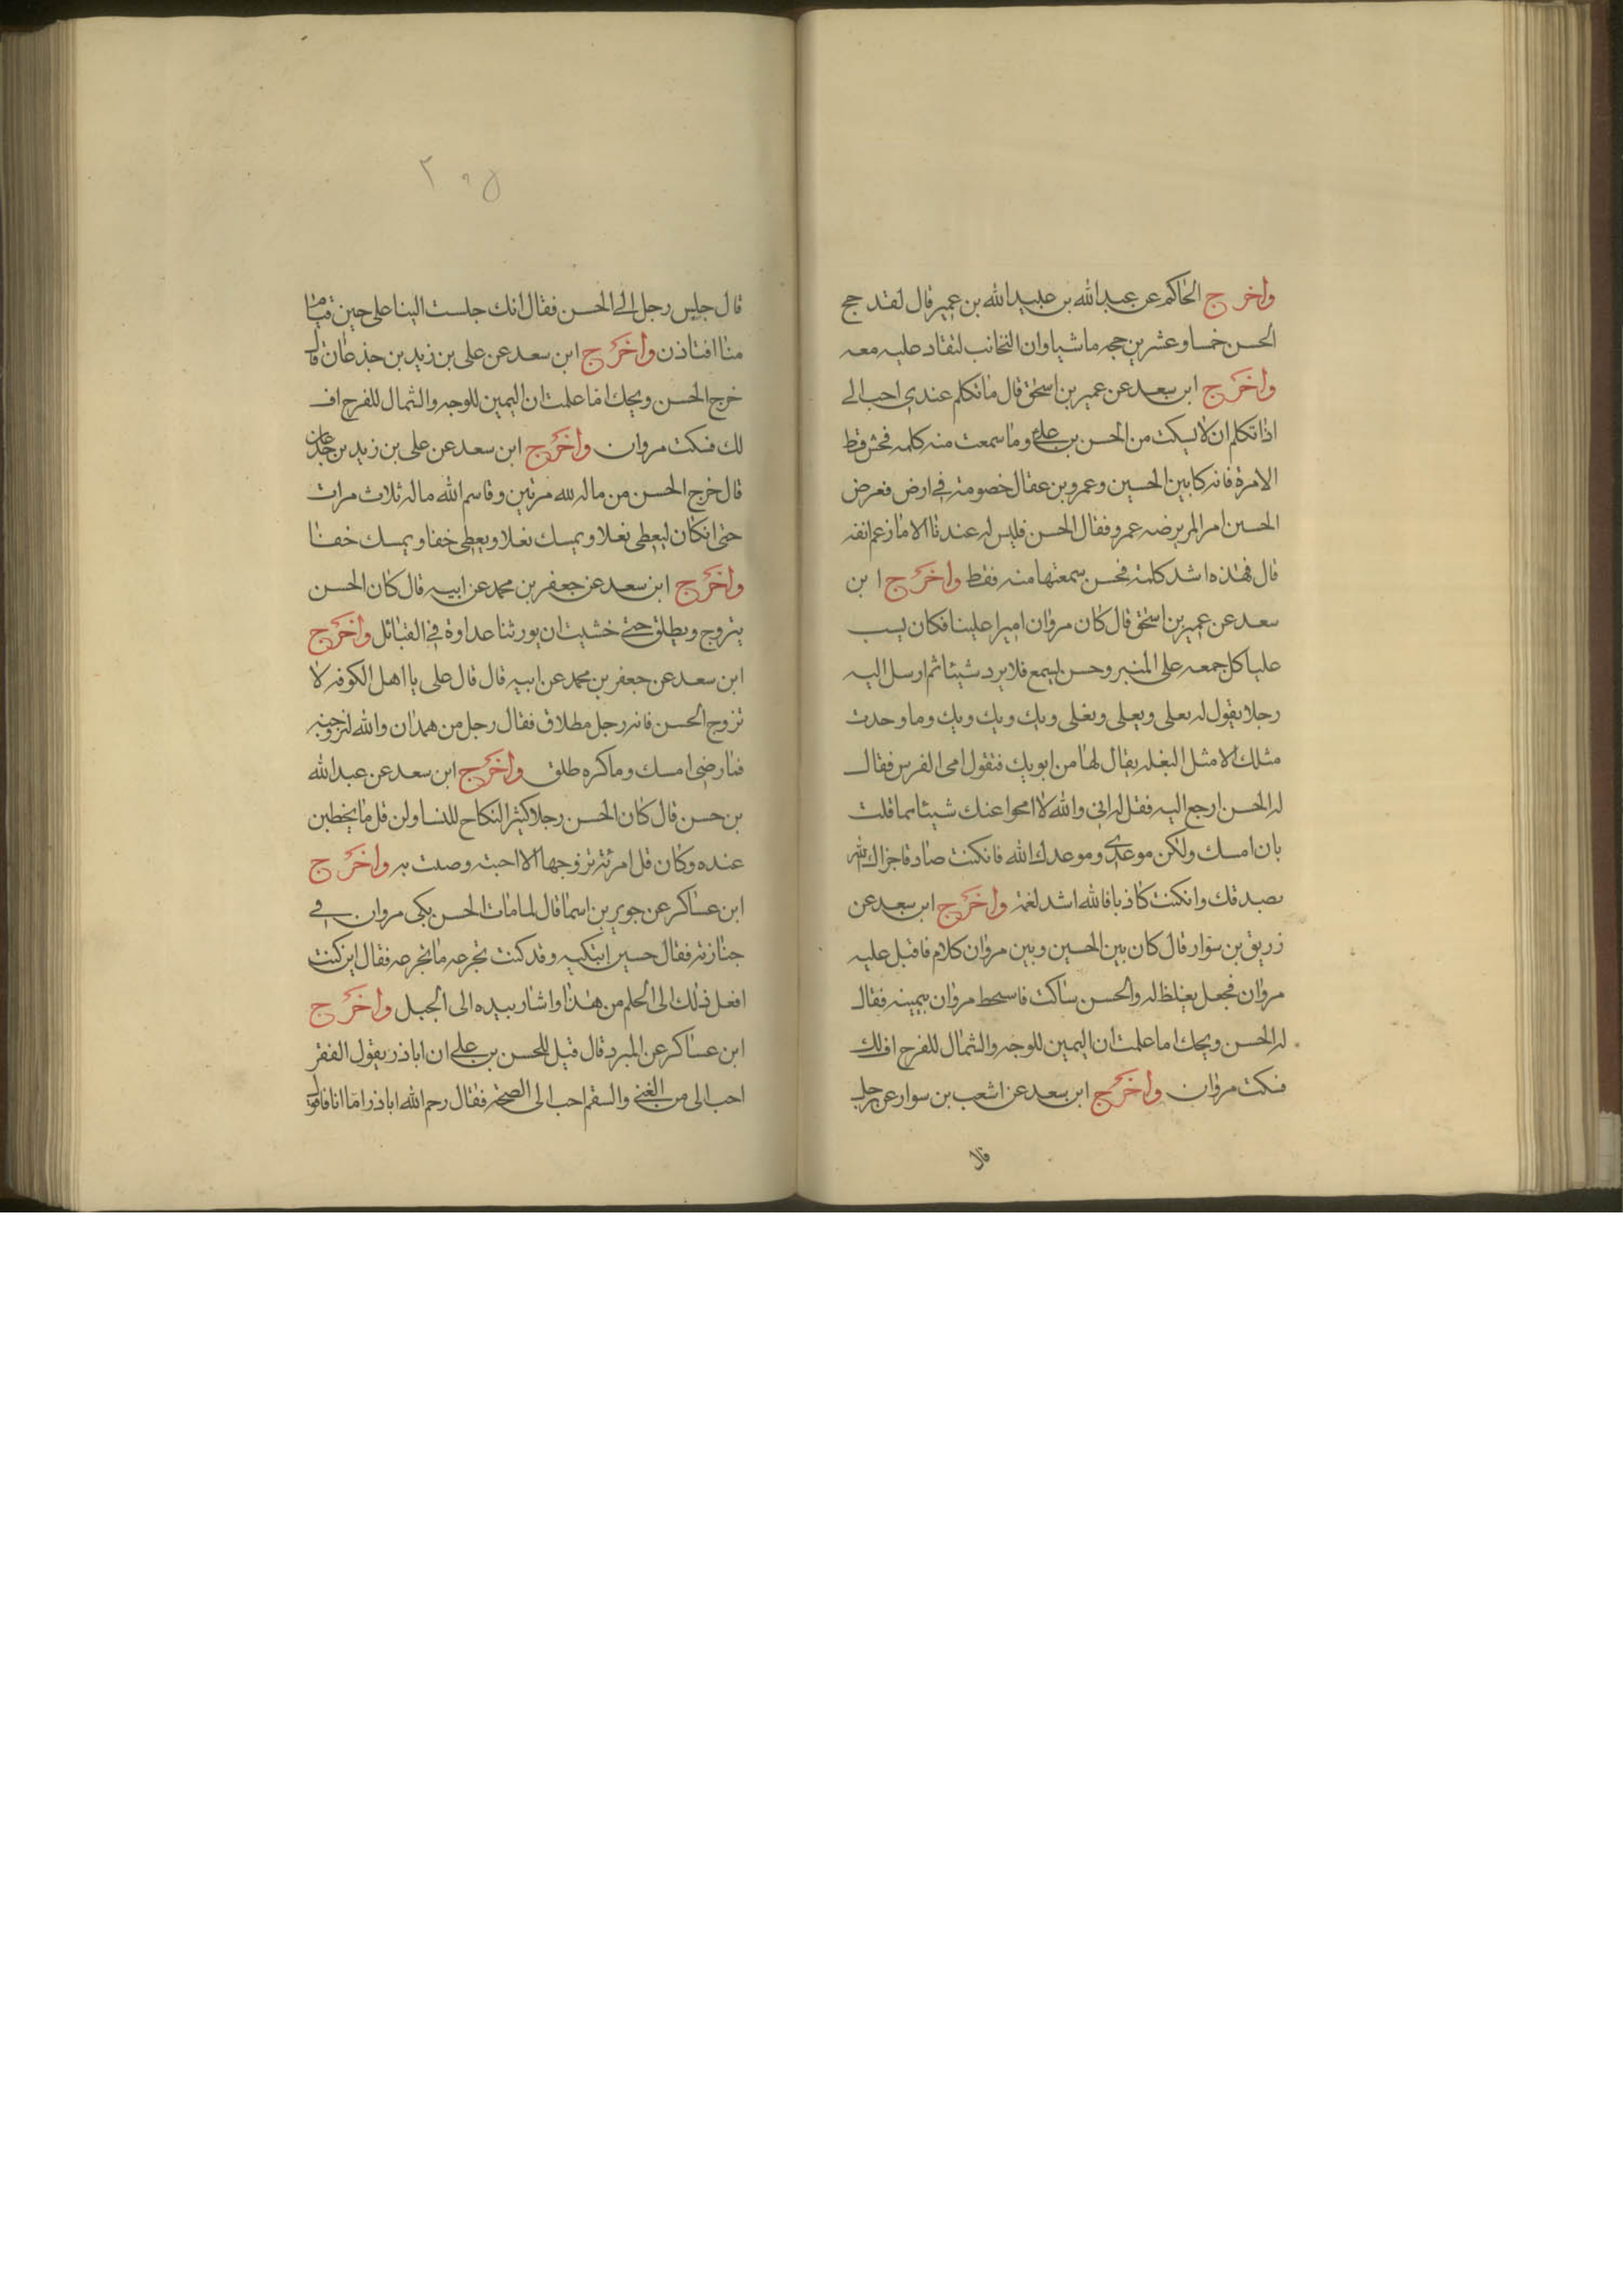 واخرج الحاكم عن عبدالله بن عبيدالله بن عمير قال لقد حج
الحسن خمسا وعشرين حجه ماشيا وان النجائب لتقاد عليه معه
واخرج ابن سعد عن عمير بن اسحق قال ما تكلم عندي احب الي
اذا تكلم ان لا يسكت من الحسن بن علي وما سمعت منه كلمه فحش قط
الا مرة فانه كا بين الحسين وعمرو بن عفال خصومة في ارض فعرض
الحسين امرا لم يرضه عمرو فقال الحسن فليس له عندنا الا ما زعم انفه
قال فهذه اشد كلمة فحسن سمعتها منه فقط واخرج ابن
سعد عن عمير بن اسحق قال كان مروان اميرا علينا فكان يسب
عليا كل جمعه على المنبر وحسن ليسمع فلا يرد شيئا ثم ارسل اليه
رجلا يقول له بعلى وبعلى وبعلى وبك وبك وبك وما وحدت
مثلك الا مثل البغله يقال لها من ابوبك فتقول امى الفرس فقال
له الحسن ارجع اليه فقل له اني والله لا امحوا عنك شيئا مما قلت
بان امسك ولكن موعدي وموعدك الله فانكنت صادقا جزاك الله
بصدقك وانكنت كاذبا فالله اشد لغمة واخرج ابن سعد عن
زريق بن سوار قال كان بين الحسين وبين مروان كلام فاقبل عليه
مروان فجعل يغلظ له والحسن ساكت فاسحط مروان بيمينه فقال
له الحسن ويحك اما علمت ان اليمين للوجه والشمال للفرج اف لك
فسكت مروان واخرج ابن سعد عن اشعب بن سوار عن رجل
قال
٢٠٥
قال جلس رجل الى الحسن فقال انك جلست الينا على حين قيام
منا افتاذن واخرج ابن سعد عن على بن زيد بن جذعان قال
خرج الحسن ويحك اما علمت ان اليمين للوجه والشمال للفرج اف
لك فسكت مروان واخرج ابن سعد عن على بن زيد بن جذعان
قال خرج الحسن من ماله لله مرتين وقاسم الله ماله ثلاث مرات
حتى انكان ليعطى نعلا ويمسك نعلا ويعطى خفا ويمسك خفا
واخرج ابن سعد عن جعفر بن محمد عن ابيه قال كان الحسن
يتزوج ويطلق حتى خشيت ان يورثنا عداوة في القبائل واخرج
ابن سعد عن جعفر بن محمد عن ابيه قال قال على يا اهل الكوفه لا
تزوج الحسن فانه رجل مطلاق فقال رجل من همدان والله لنزوجنه
فما رضى امسك وما كره طلق واخرج ابن سعد عن عبدالله
بن حسن قال كان الحسن رجلا كثير النكاح للنسا ولن قل ما يخطبن
عنده وكان قل امرئة تزوجها الا احبته وصبت به واخرج
ابن عساكر عن جوير بن اسما قال لما مات الحسن بكى مروان في
جنازته فقال حسين اتبكيه وقد كنت تجرعه ما تجرعه فقال اين كنت
افعل ذلك الى احلم من هذا واشار بيده الى الجبل واخرج
ابن عساكر عن المبرد قال قيل للحسن بن على ان اباذر يقول الفقر
احب الى من الغنى والسقم احب الى الصحه فقال رحم الله اباذر اما انا فاقول